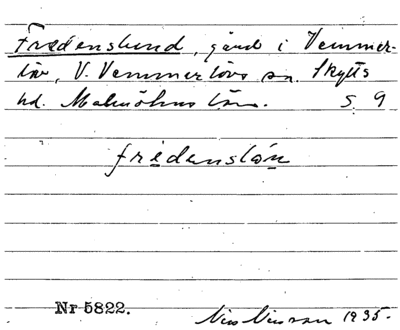 Fredenslund, gård i Vemmer-
löv, V. Vemmerlövs sn. Skytts
hd. Malmöhus län. S. 9
fredenslön
Nr 5822.
1935.